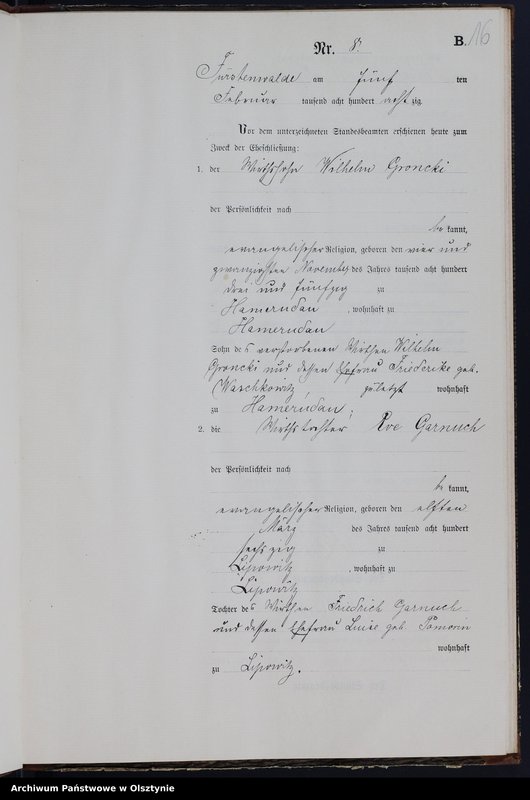 16
B.
Nr. 8.
Fürstenwalde am fünf ten
Februar tausend acht hundert acht zig
Vor dem unterzeichneten Standesbeamten erschienen heute zum
Zweck der Eheschließung:
1. der Wirthssohn Wilhelm Groncki
der Persönlichkeit nach
be kannt,
evangelischer Religion, geboren den vier und
zwanzigsten November des Jahres tausend acht hundert
drei und fünfzig zu
Hamerudau, wohnhaft zu
Hamerudau
Sohn des verstorbenen Wirthen Wilhelm
Groncki und dessen Ehefrau Friederike geb.
Waschkowitz, zuletzt wohnhaft
zu Hamerudau;
2. die Wirthstochter Eve Garnuch
der Persönlichkeit nach
be kannt,
evangelischer Religion, geboren den elften
März des Jahres tausend acht hundert
sechszig zu
Lipowitz, wohnhaft zu
Lipowitz
Tochter des Wirthen Friedrich Garnuch
und dessen Ehefrau Luise geb. Pomorin
wohnhaft
zu Lipowitz.
Archiwum Państwowe w Olsztynie